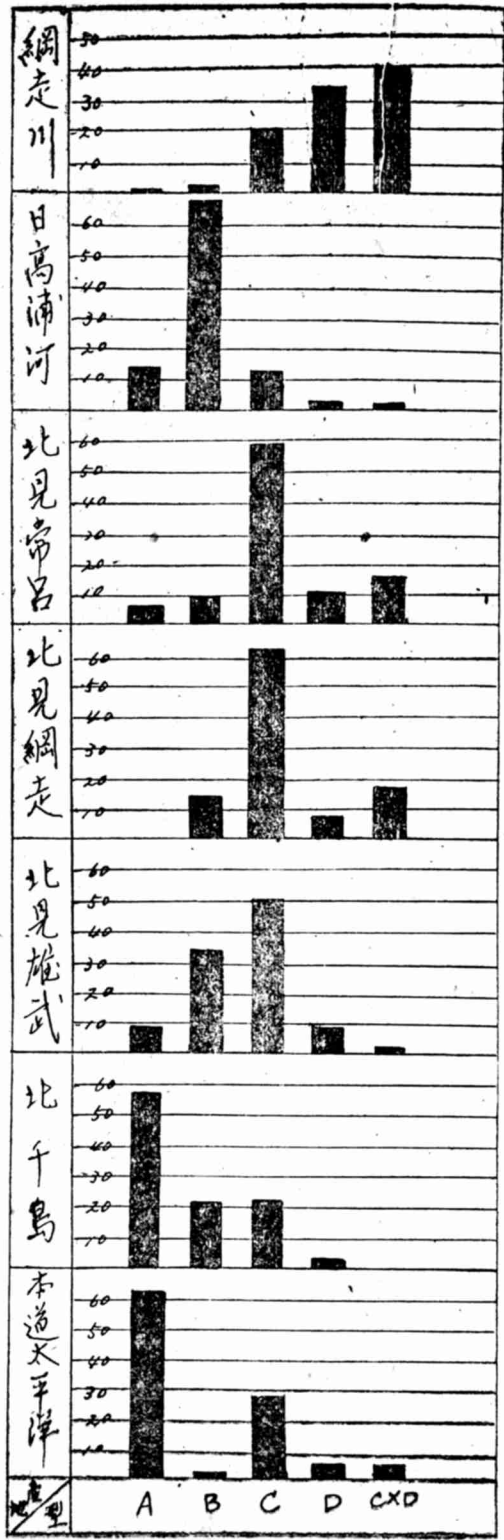 網走川
50
40
30
20
10
日高浦河
60
50
40
30
20
10
北見常呂
60
50
40
30
20
10
北見網走
60
50
40
30
20
10
北見雄武
60
50
40
30
20
10
北千島
60
50
40
30
20
10
本道太平洋
60
50
40
30
20
10
産地 型 A B C D C×D